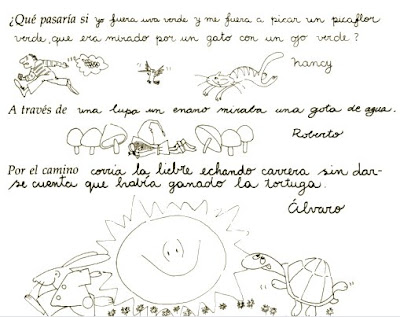 ¿Qué pasaría si yo fuera uva verde y me fuera a picar un picaflor
verde, que era mirado por un gato con un ojo verde?
Nancy
A través de una lupa un enano miraba una gota de agua.
Roberto
Por el camino corría la liebre echando carrera sin dar-
se cuenta que había ganado la tortuga.
Álvaro